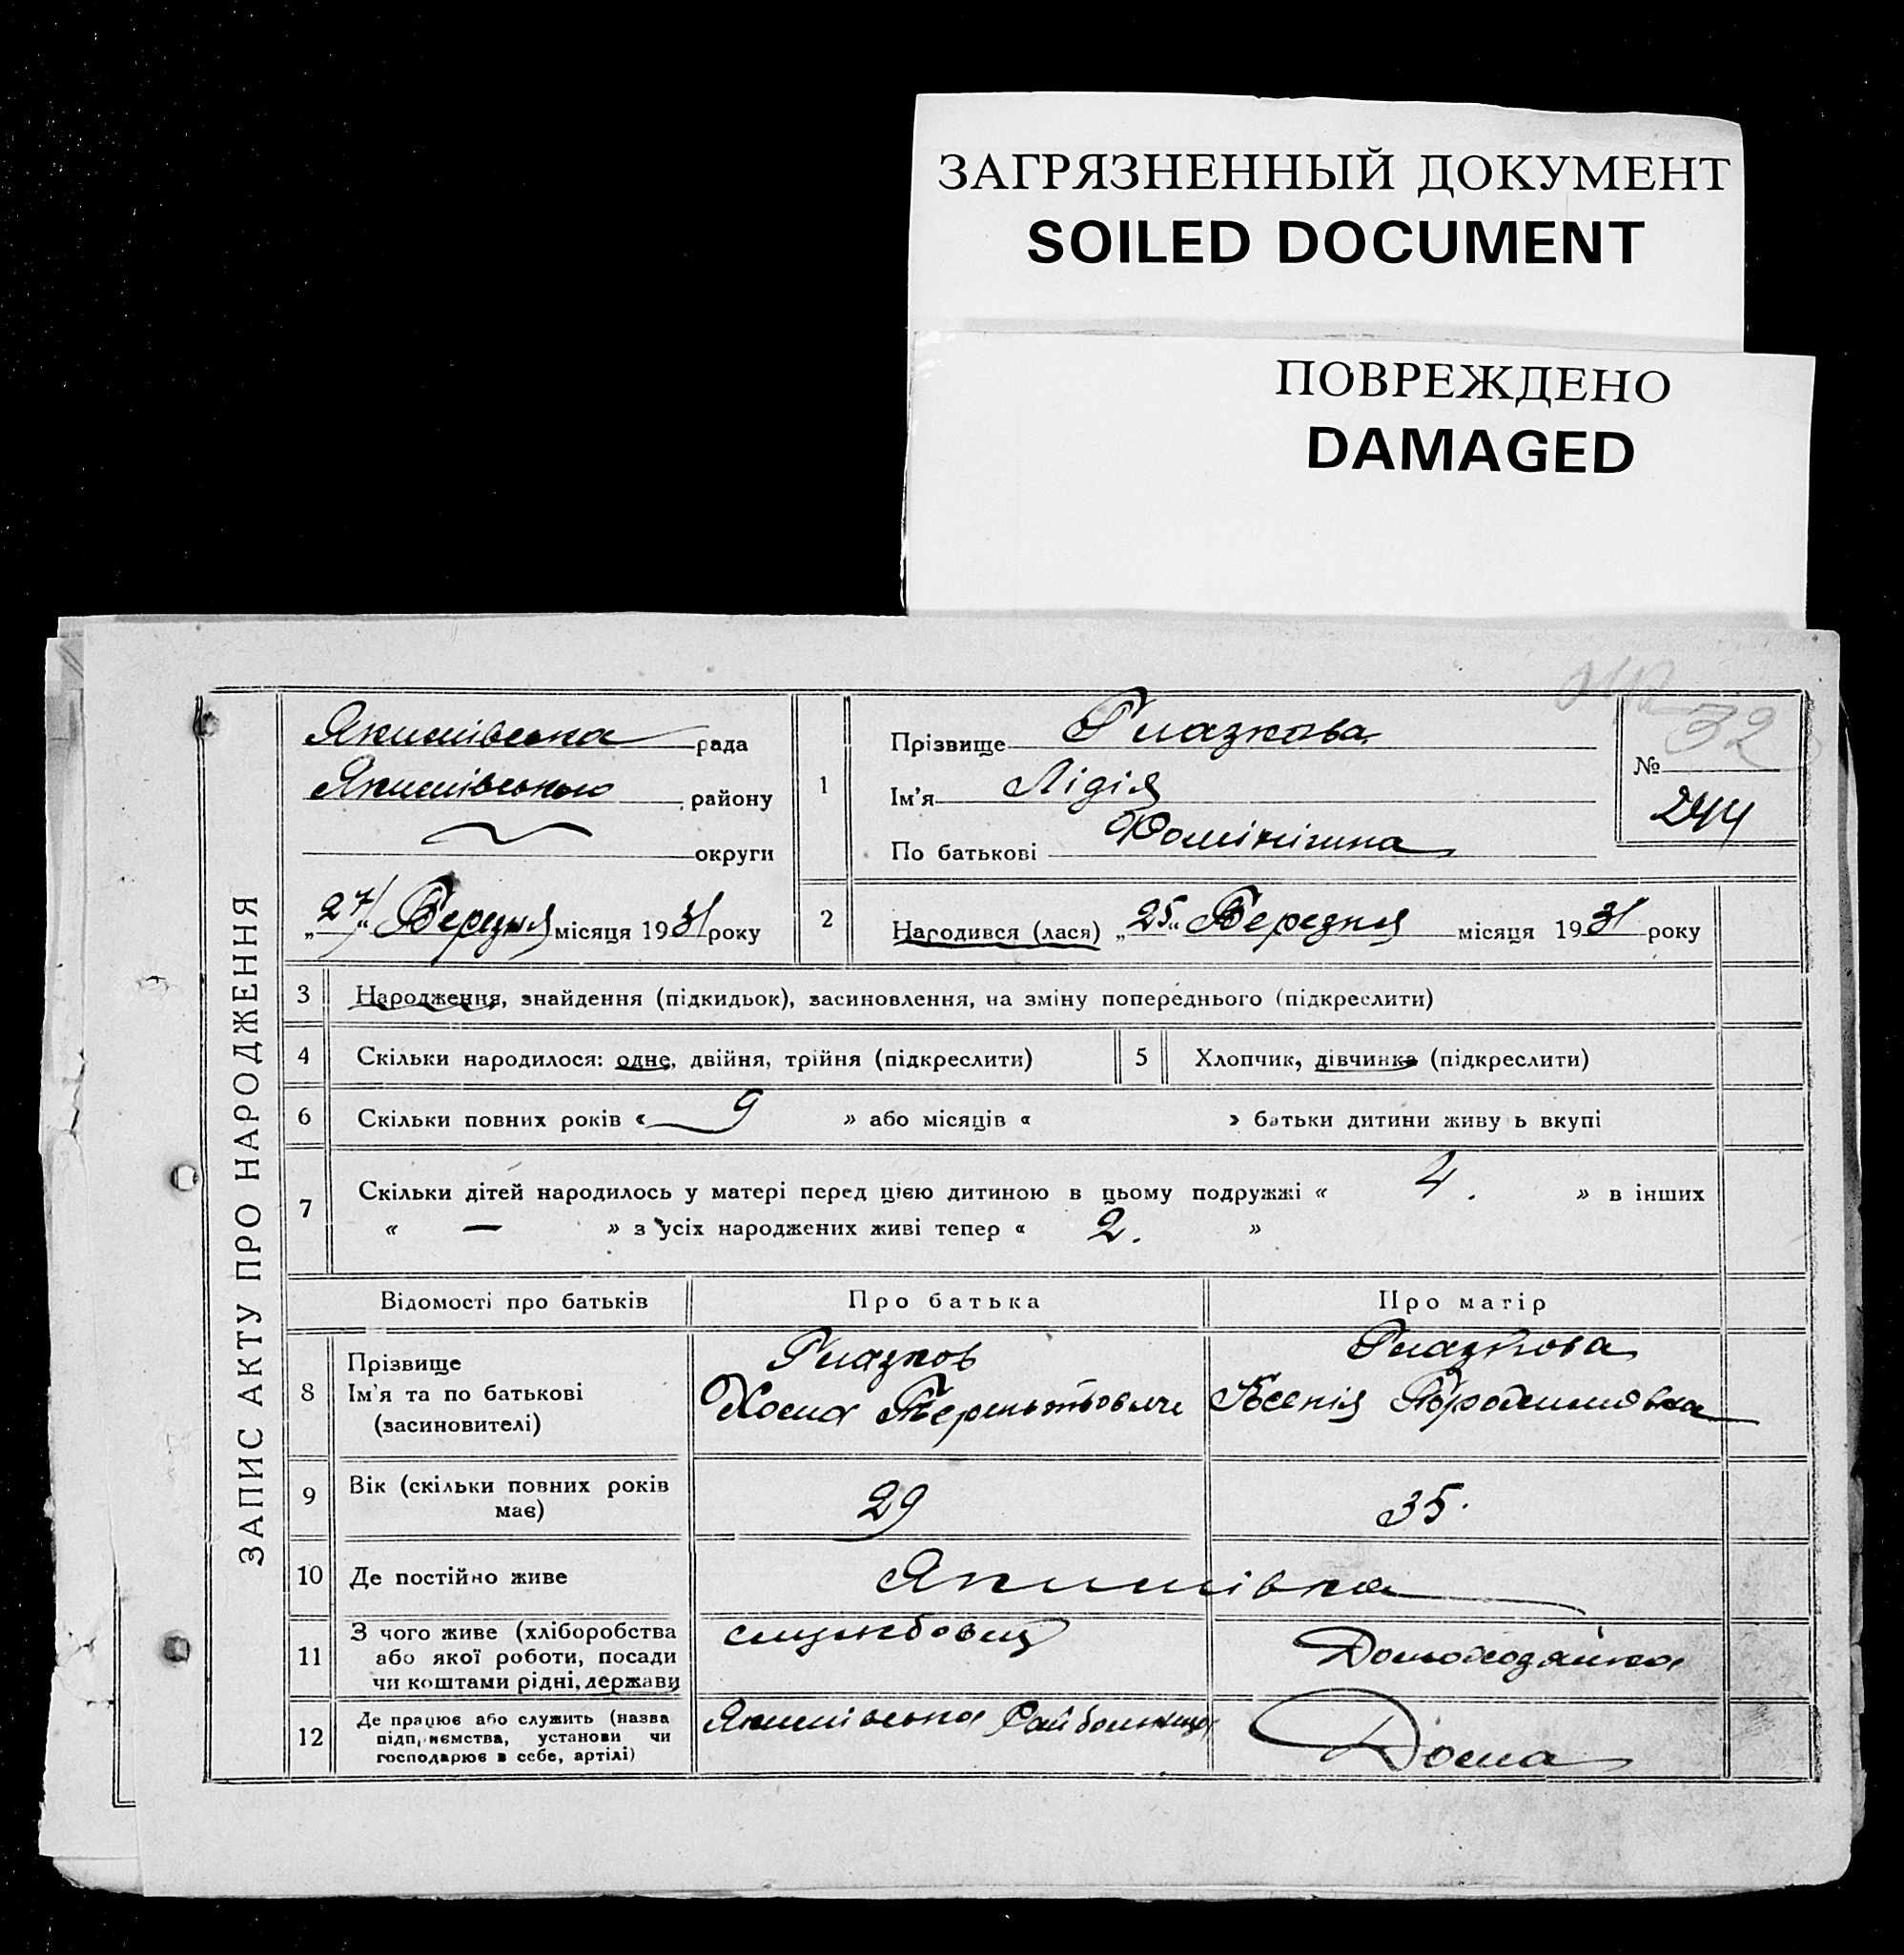 ЗАГРЯЗНЕННЫЙ ДОКУМЕНТ
SOILED DOCUMENT
ПОВРЕЖДЕНО
DAMAGED
ЗАПИС АКТУ ПРО НАРОДЖЕННЯ
Якимівська рада
Якимівського району
округи
„27" Березня місяця 1931 року
1
Прізвище Глазкова
Ім'я Лідія
По батькові Хомінішна
32
№
244
2 Народився (лася) „25" Березня місяця 1931 року
3 Народження, знайдення (підкидьок), засиновлення, на зміну попереднього (підкреслити)
4 Скільки народилося: одне, двійня, трійня (підкреслити) 5 Хлопчик, дівчинка (підкреслити)
6 Скільки повних років « 9 » або місяців « » батьки дитини живу ь вкупі
7 Скільки дітей народилось у матері перед цією дитиною в цьому подружжі « 4. » в інших
« — » з усіх народжених живі тепер « 2. »
Відомості про батьків Про батька Про матір
8 Прізвище Глазков Глазкова
Ім'я та по батькові Хома Терентьович Ксенія
(засиновителі)
9 Вік (скільки повних років має) 29 35.
10 Де постійно живе Якимівка
11 З чого живе (хліборобства або якої роботи, посади чи коштами рідні, держави службовец Домохозяйка
12 Де працює або служить (назва підприємства, установи чи господарює в себе, артілі) Якимівська Райбольница Дома